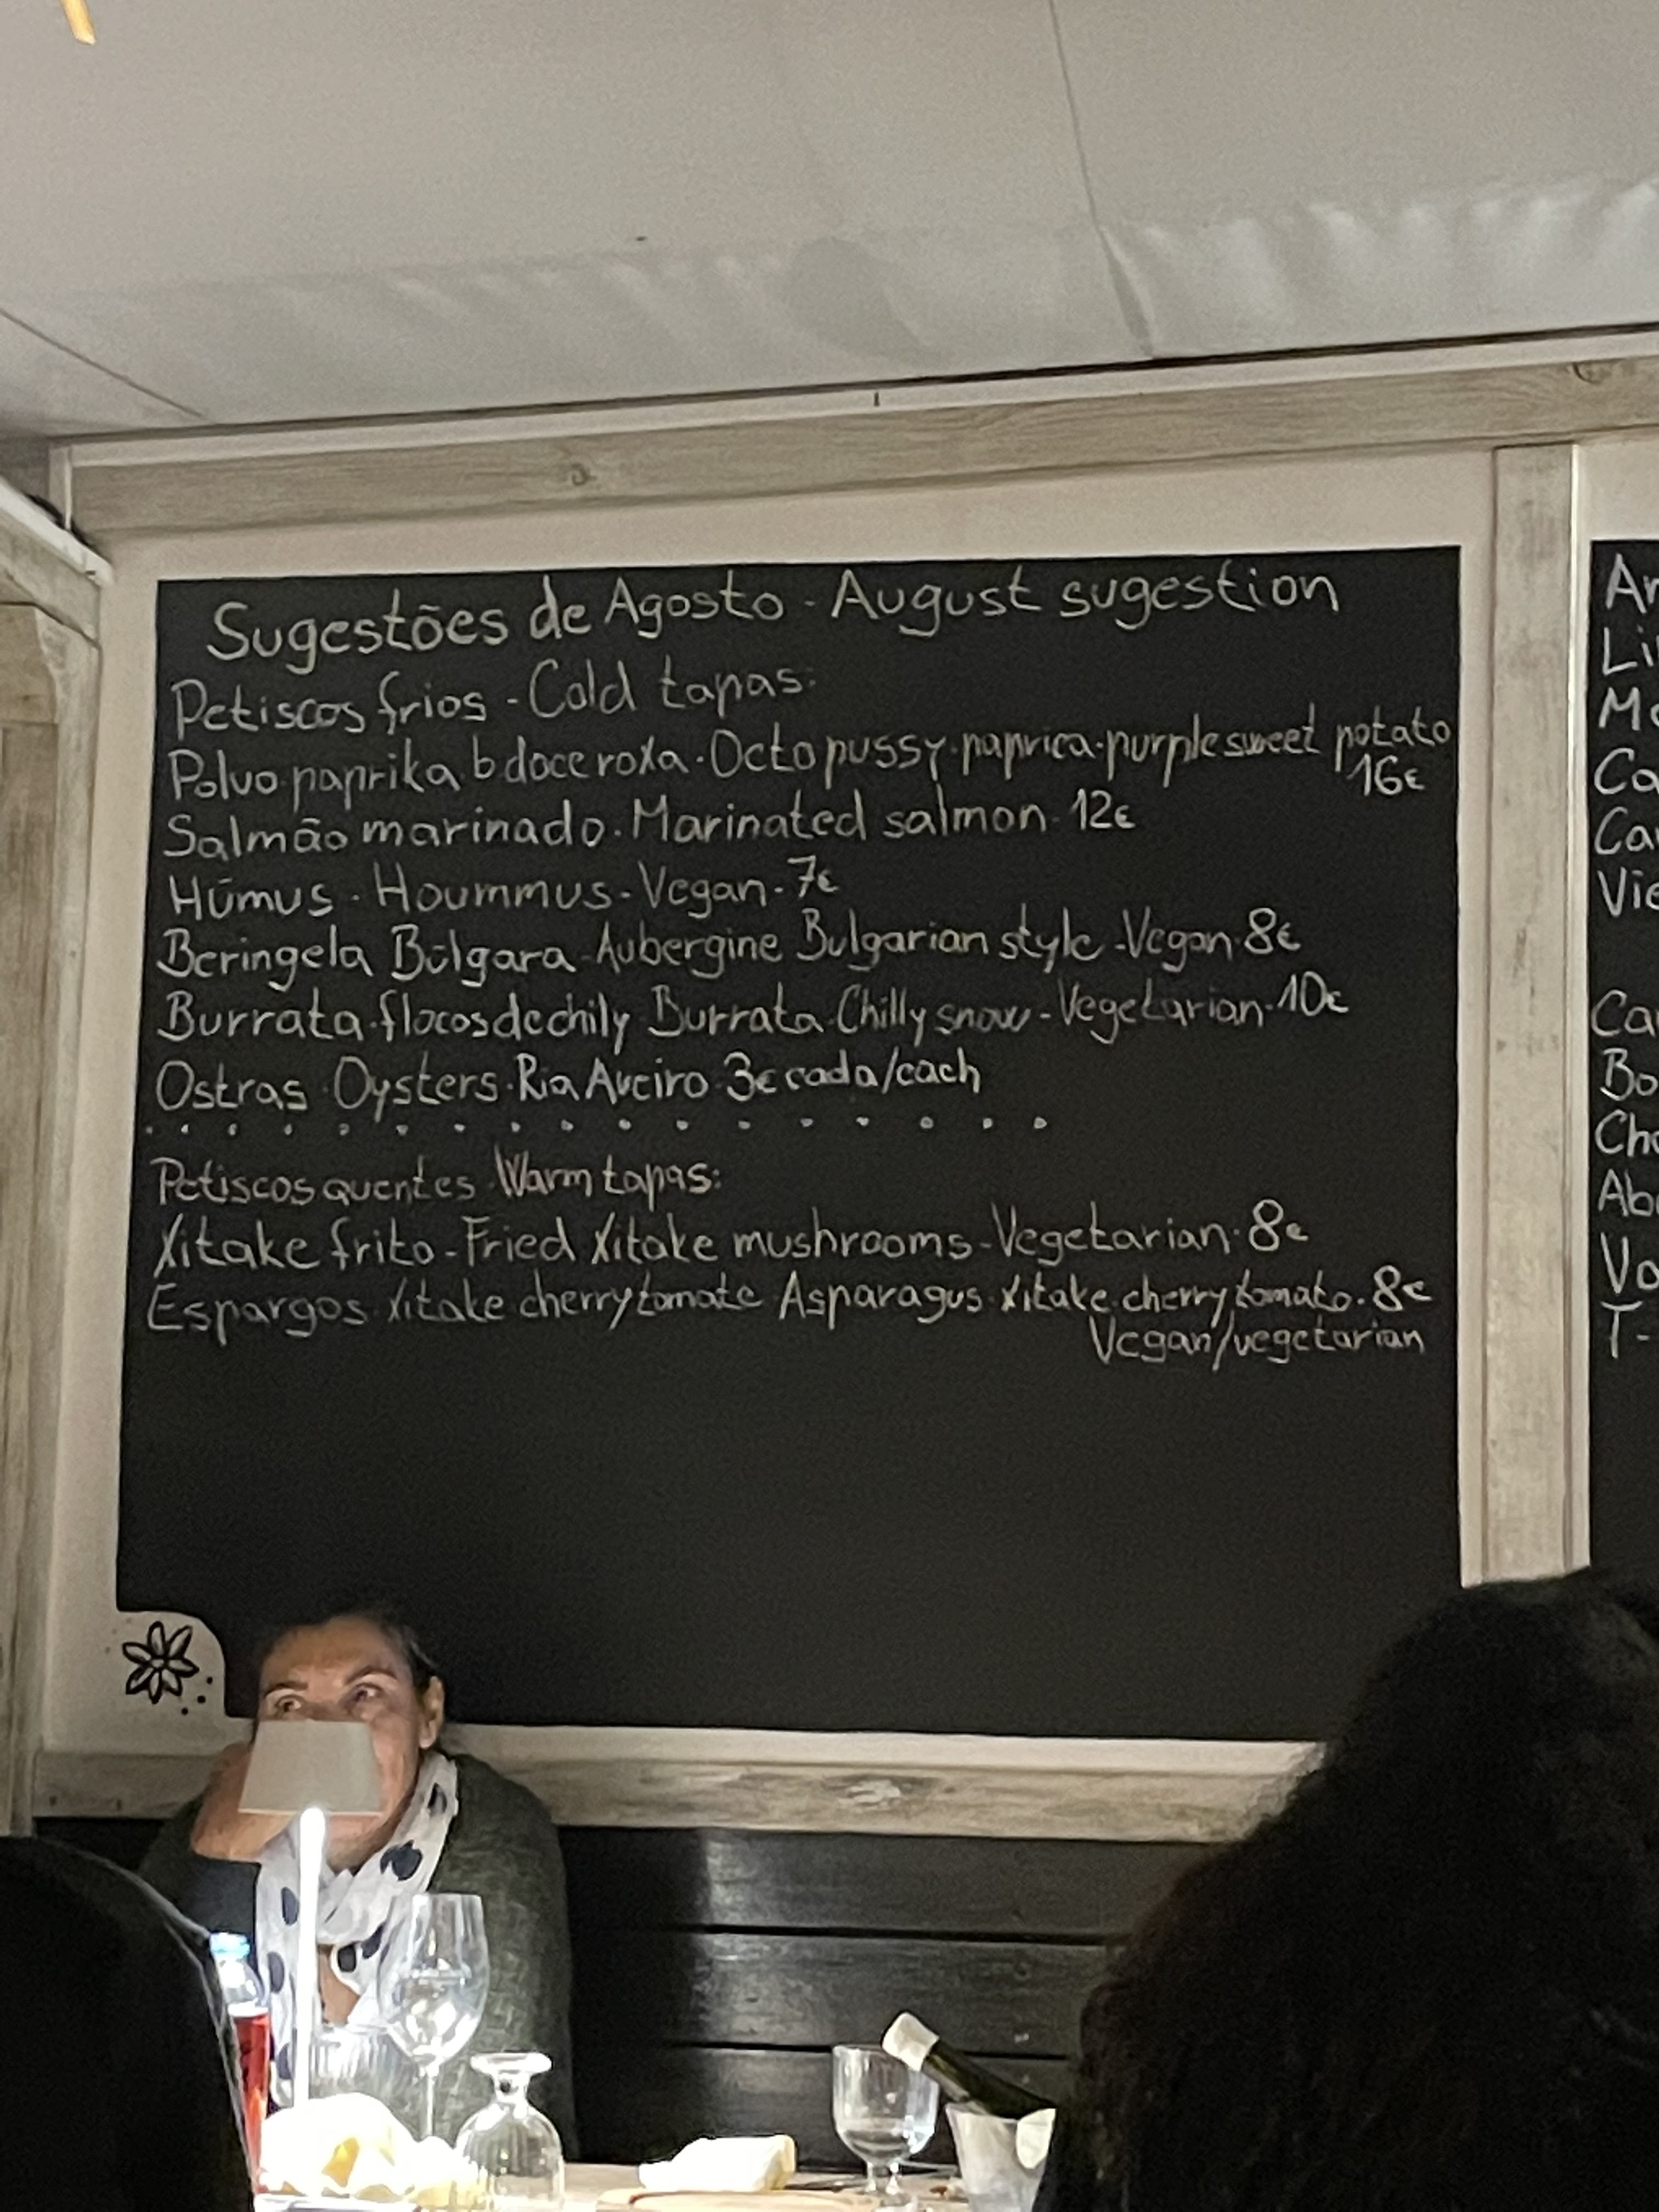 Sugestões de Agosto - August sugestion
Petiscos frios - Cold tapas:
Polvo. paprika. b doce roxa. Octopussy. paprica. purple sweet potato
16€
Salmão marinado. Marinated salmon. 12€
Húmus. Hoummus. Vegan. 7€
Beringela Búlgara. Aubergine Bulgarian style - Vegan. 8€
Burrata. flocos de chily Burrata. Chilly snow - Vegetarian. 10€
Ostras. Oysters. Ria Aveiro. 3€ cada/each
Petiscos quentes. Warm tapas:
Xitake frito - Fried Xitake mushrooms - Vegetarian. 8€
Espargos. Xitake cherry tomate Asparagus. Xitake. cherry tomato. 8€
Vegan/vegetarian
Ar
Li
Ca
Ca
Vie
Ca
Bo
Cho
Abo
T-